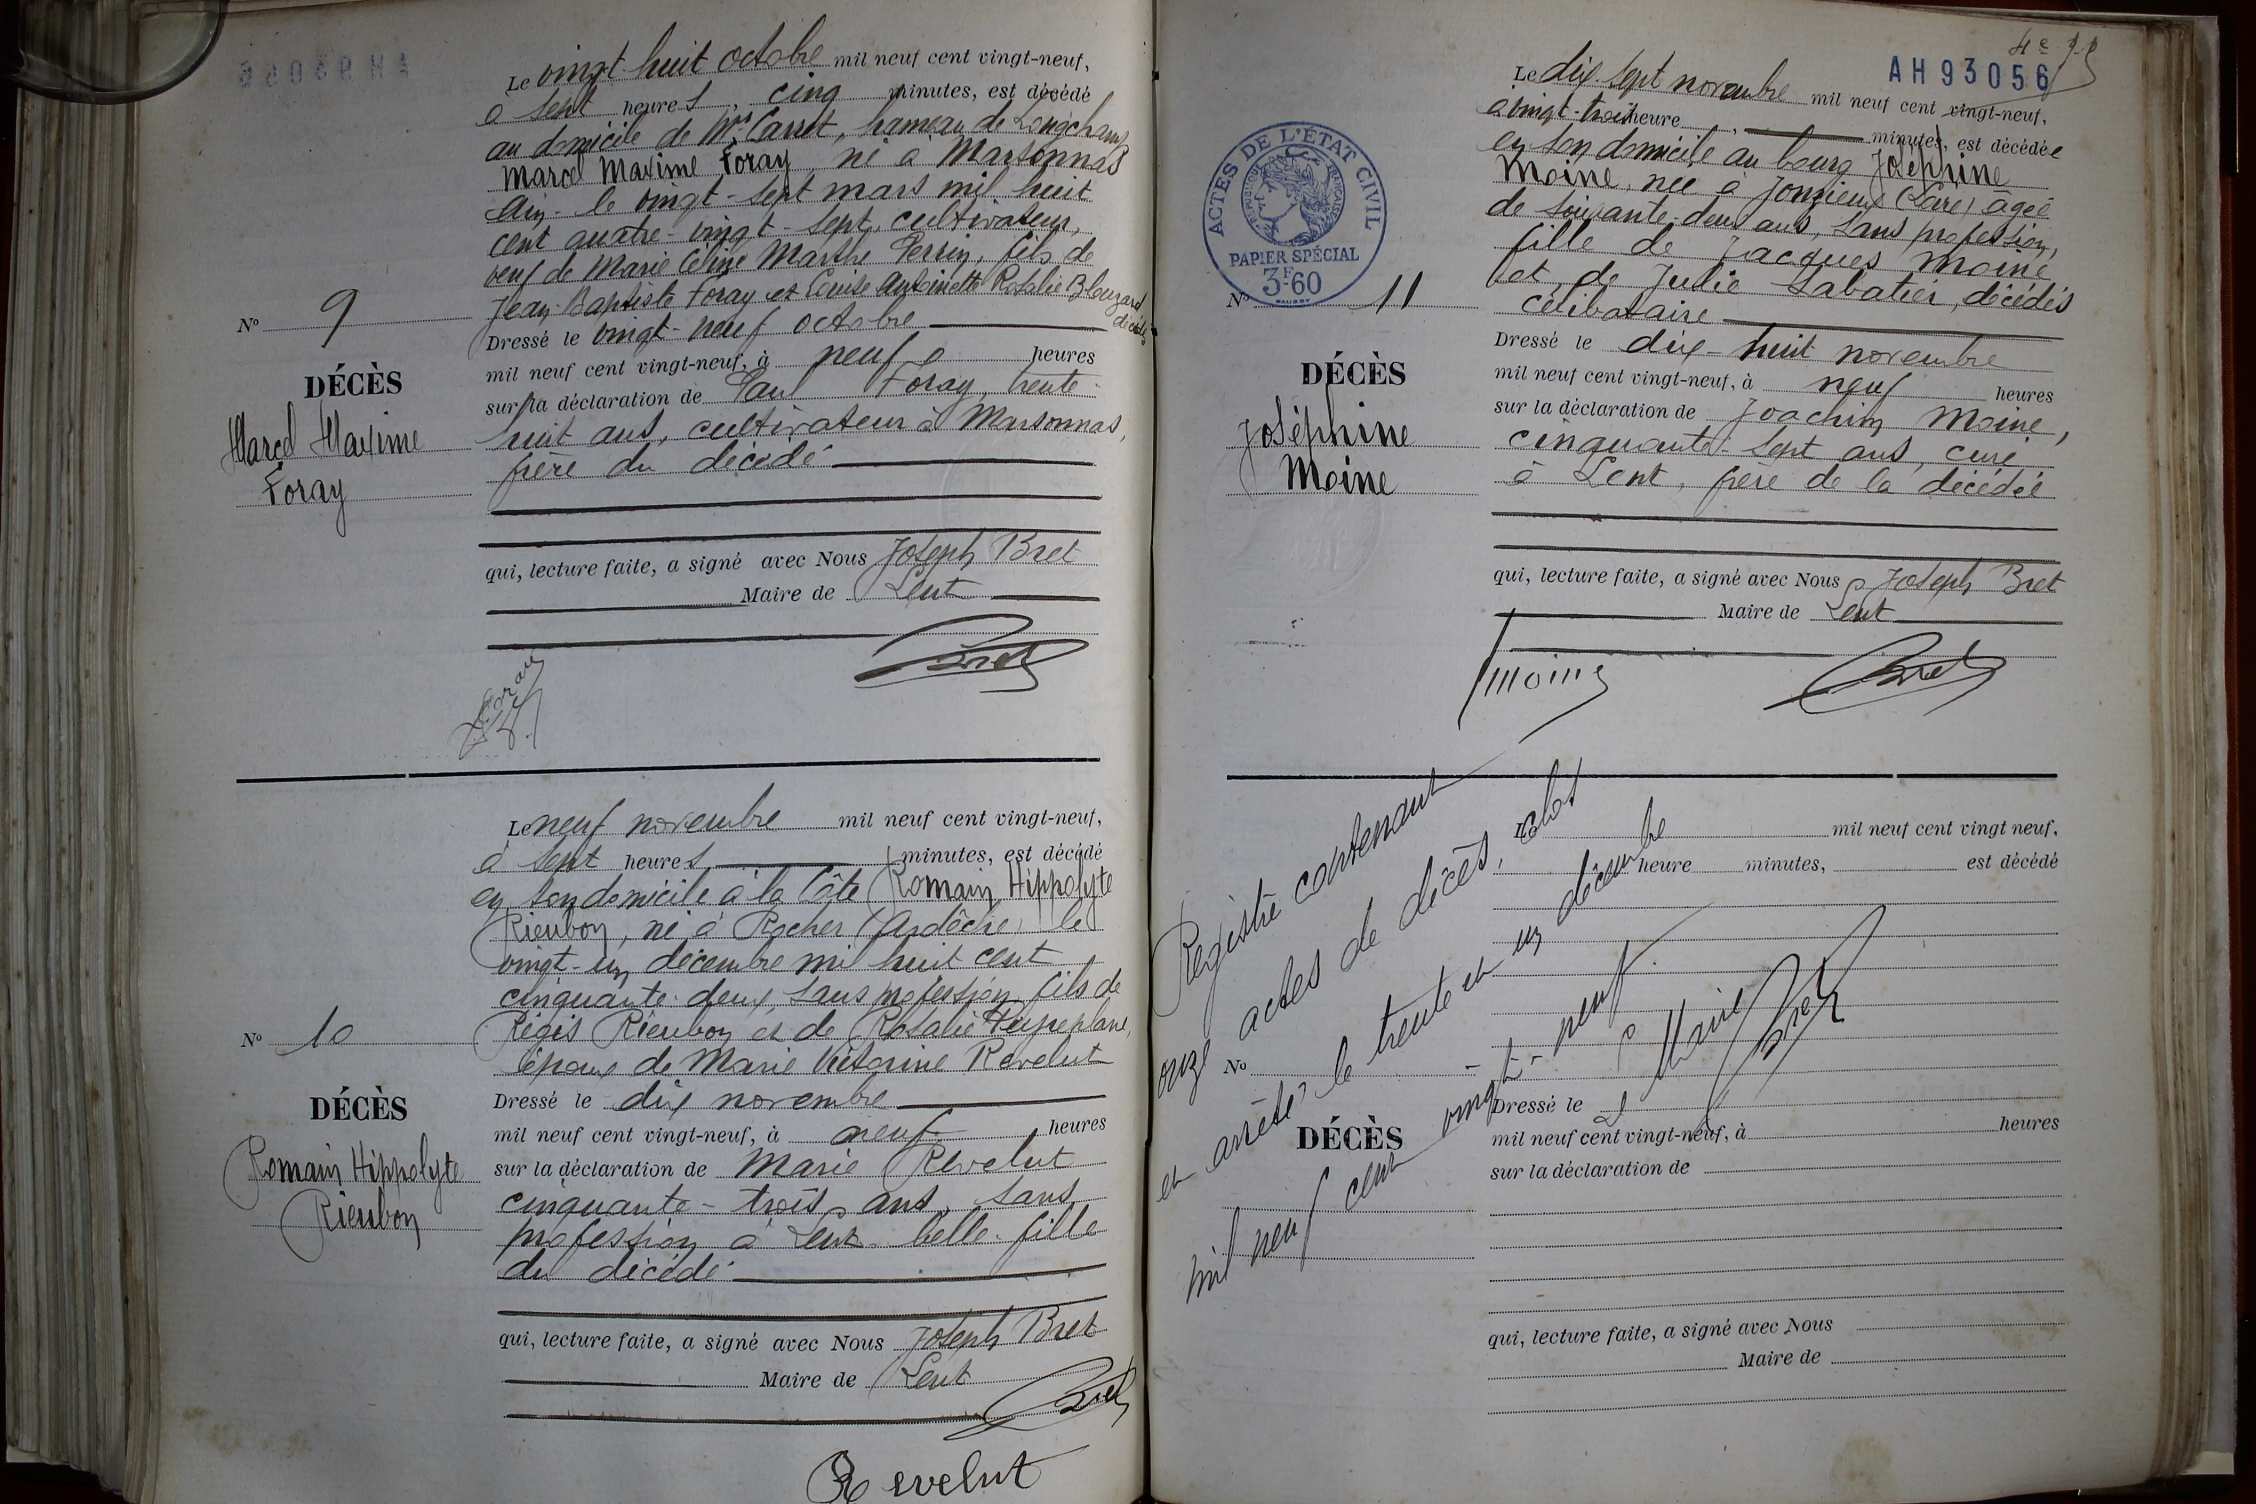 Le vingt-huit octobre mil neuf cent vingt-neuf,
à sept heures, cinq minutes, est décédé
au domicile de Mr Carret, hameau de Longchamp
Marcel Maxime Foray, né à Marsonnas
Ain, le vingt-sept mars mil huit
cent quatre-vingt-sept, cultivateur,
veuf de Marie Céline Marthe Perrin, fils de
Jean-Baptiste Foray et Louise Antoinette Rosalie Blouzard
décédés
Nº 9
Dressé le vingt-neuf octobre
mil neuf cent vingt-neuf, à neuf heures
DÉCÈS
Marcel Maxime
Foray
sur la déclaration de Paul Foray, trente-
huit ans, cultivateur à Marsonnas,
frère du décédé
qui, lecture faite, a signé avec Nous Joseph Bret
Maire de Lent
Foray
Bret
Le neuf novembre mil neuf cent vingt-neuf,
à sept heures minutes, est décédé
en son domicile à la Côte Romain Hippolyte
Rieubon, né à Rocher (Ardèche) le
vingt-un décembre mil huit cent
cinquante-deux, sans profession, fils de
Régis Rieubon et de Rosalie Peyreplane,
époux de Marie Victorine Revelut
Nº 10
DÉCÈS
Romain Hippolyte
Rieubon
Dressé le dix novembre
mil neuf cent vingt-neuf, à neuf heures
sur la déclaration de Marie Revelut
cinquante-trois ans, sans
profession à Lent belle-fille
du décédé
qui, lecture faite, a signé avec Nous Joseph Bret
Maire de Lent
Bret
Revelut
4e
AH93056
ACTES DE L'ÉTAT CIVIL
RÉPUBLIQUE FRANÇAISE
PAPIER SPÉCIAL
3F60
Le dix-sept novembre mil neuf cent vingt-neuf,
à vingt-trois heure, minutes, est décédée
en son domicile au bourg Joséphine
Moine, née à Jonzieux (Loire) âgée
de soixante-deux ans, sans profession,
fille de Jacques Moine
et de Julie Sabatier, décédés
célibataire
Nº 11
DÉCÈS
Joséphine
Moine
Dressé le dix-huit novembre
mil neuf cent vingt-neuf, à neuf heures
sur la déclaration de Joachim Moine,
cinquante-sept ans, curé
à Lent, frère de la décédée
qui, lecture faite, a signé avec Nous Joseph Bret
Maire de Lent
Moine
Bret
Le mil neuf cent vingt neuf,
heure minutes, est décédé
Nº
DÉCÈS
Dressé le
mil neuf cent vingt-neuf, à heures
sur la déclaration de
qui, lecture faite, a signé avec Nous
Maire de
Registre contenant
onze actes de décès, clos
et arrêté, le trente et un décembre
mil neuf cent vingt-neuf.
Le Maire
Bret